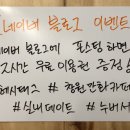 네이버 블로그 이벤트
네이버 블로그에 포스팅 하면
2시간 무료 이용권 증정
해시태그 # 창원 간
#실내데이트 #누비